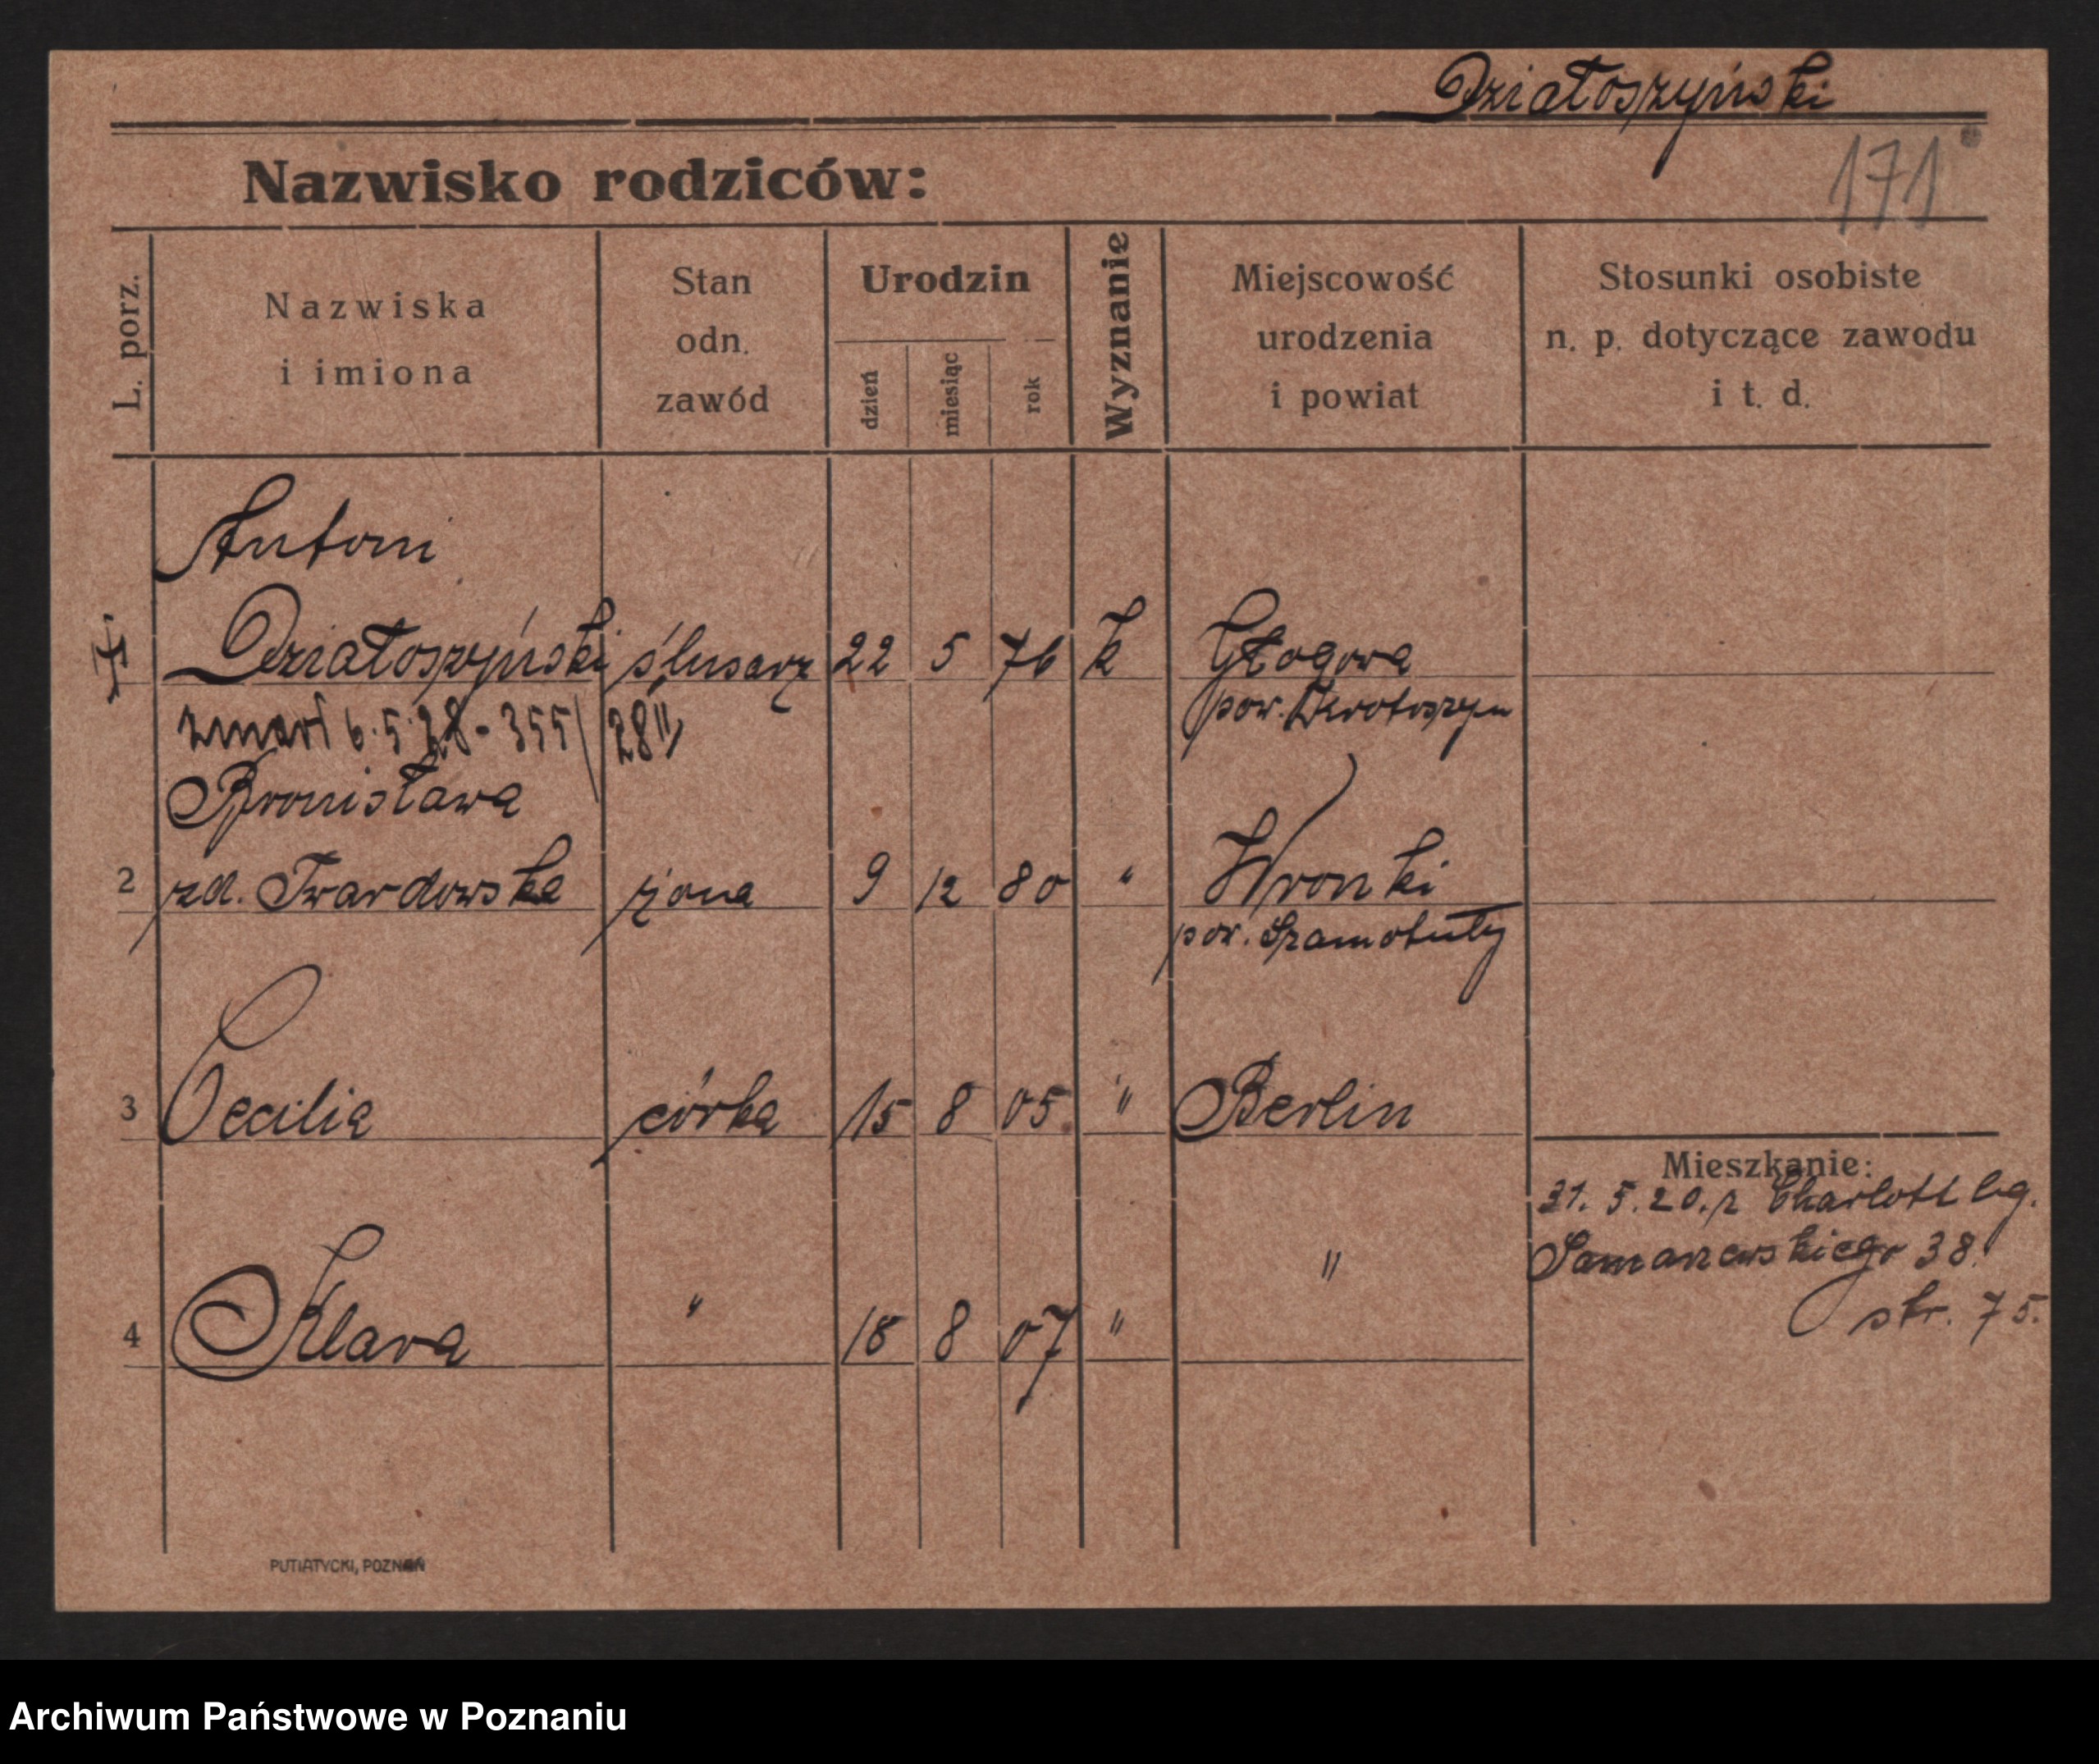 Działoszyński
Nazwisko rodziców:
171
L. porz.
Nazwiska
i imiona
Stan
odn.
zawód
Urodzin
dzień
miesiąc
rok
Wyznanie
Miejscowość
urodzenia
i powiat
Stosunki osobiste
n. p. dotyczące zawodu
i t. d.
Antoni
Działoszyński ślusarz 22 5 76 k Głogowa
pow. Krotoszyn
zmarł 6.5.28 - 355/28 "
Bronisława
2 zd. Twardowska żona 9 12 80 " Wronki
pow. Szamotuły
3 Cecilia córka 15 8 05 " Berlin
Mieszkanie:
31. 5. 20. z Charlottbg.
Samarzewskiego 38.
str. 75.
4 Klara " 18 8 07 " "
PUTIATYCKI, POZNAŃ
Archiwum Państwowe w Poznaniu